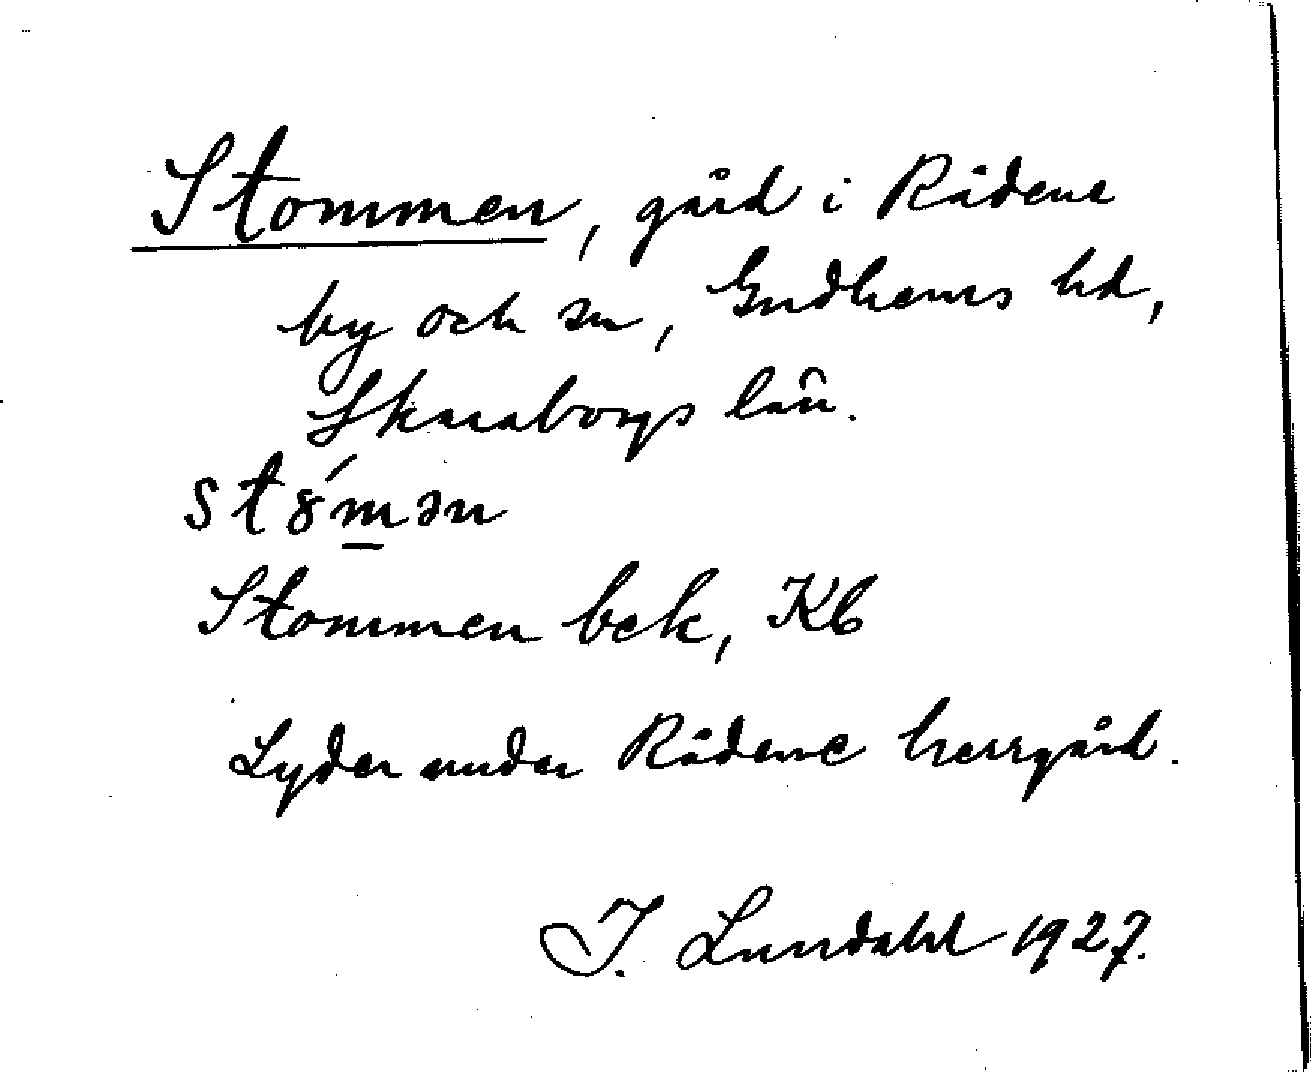 Stommen, gård i Rådene
by och sn, Gudhems hd,
Skaraborgs län.
st8́m̲ən
Stommen bek, Kb
Lyder under Rådene herrgård.
I. Lundahl 1927.